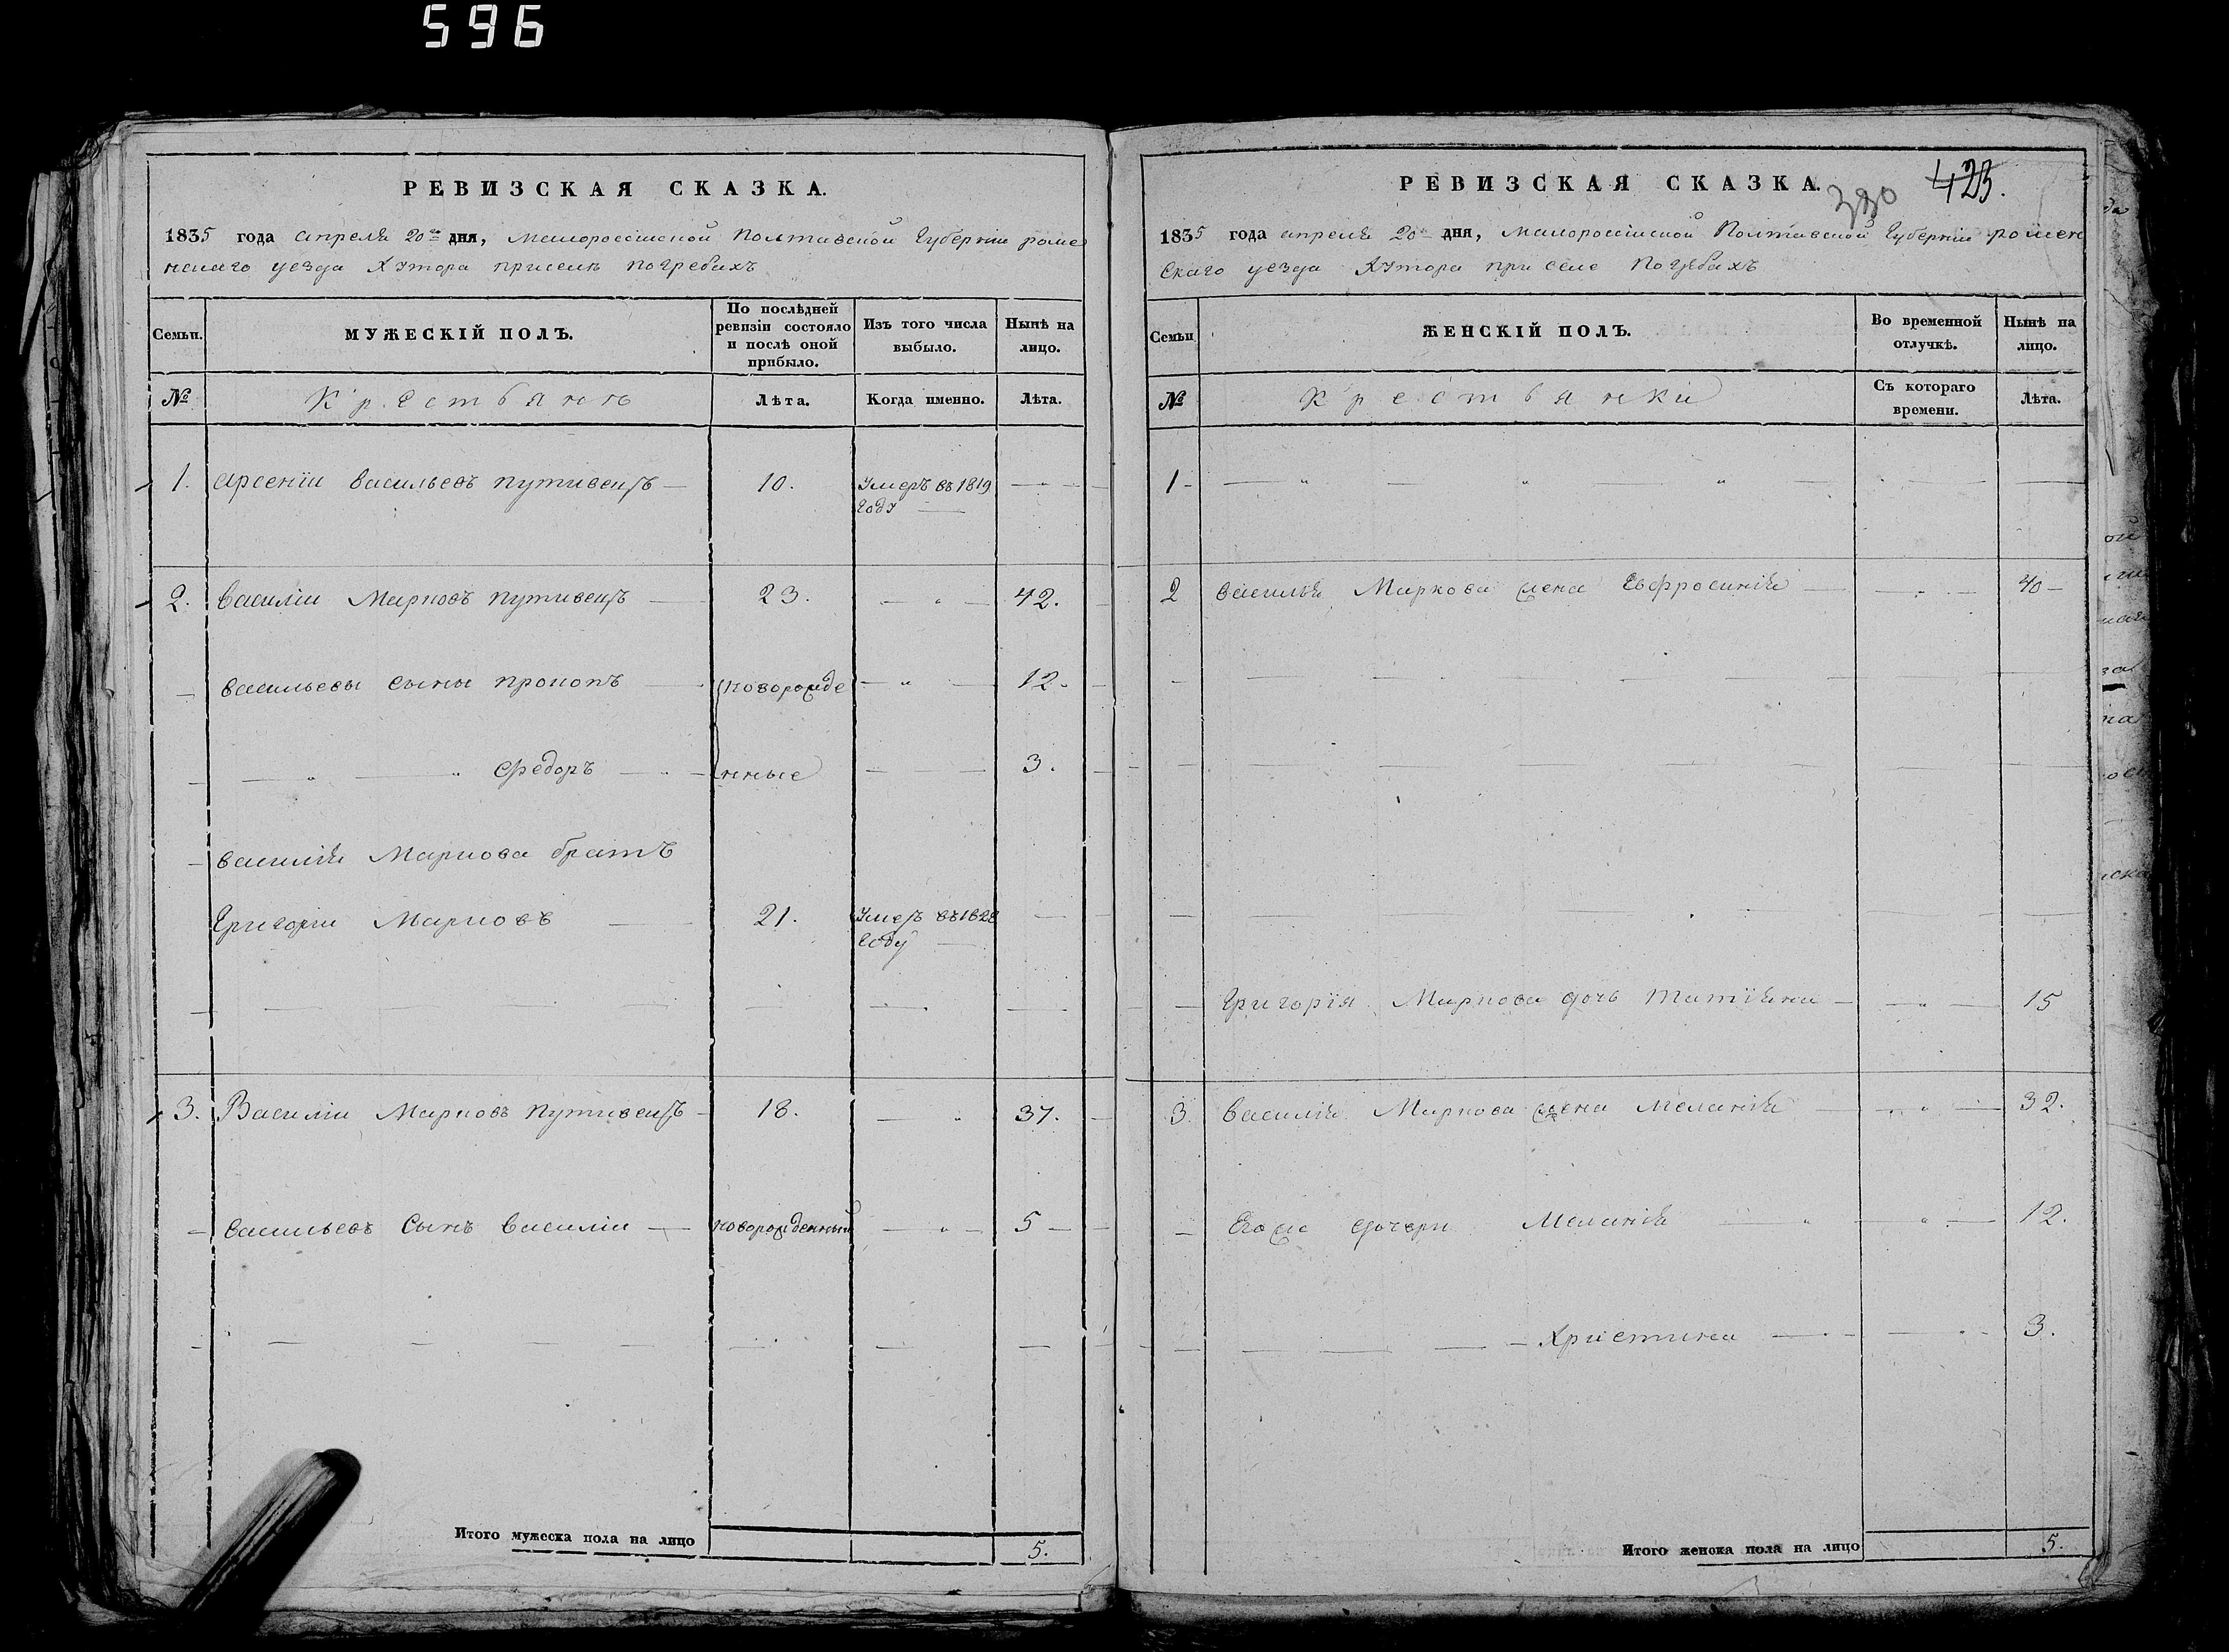 596
РЕВИЗСКАЯ СКАЗКА.
1835 года апреля 20го дня, Малороссійской Полтавской Губерніи роме
нскаго уезда Хутора приселѣ погребахъ
Семьи.
МУЖЕСКІЙ ПОЛЪ.
По послѣдней ревизіи состояло и послѣ оной прибыло.
Изъ того числа выбыло.
Нынѣ на лицо.
№
Крестьянъ
Лѣта.
Когда именно.
Лѣта.
1. Арсеніи Васильевъ путивецъ 10. Умеръ въ 1819
Году
2. Василіи Марковъ путивецъ 23. 42.
Васильевы сыны прокопъ новорожде 12.
Федоръ нные 3.
Василія Маркова братъ
Григоріи Марковъ 21. Умеръ въ 1828
Году
3. Василіи Марковъ Путивецъ 18. 37.
Васильевъ Сынъ Василіи новорожденный 5
Итого мужеска пола на лицо 5.
423.
390
РЕВИЗСКАЯ СКАЗКА.
1835 года апреля 20 дня, Малороссійской Полтавской Губерніи ромен
скаго уезда Хутора при селе Погребахъ
Семьи
ЖЕНСКІЙ ПОЛЪ.
Во временной отлучкѣ.
Нынѣ на лицо.
№
Крестьянки
Съ котораго времени.
Лѣта.
1
2 Василія Маркова жена Евфросинія 40
Григорія Маркова дочь Татіяна 15
3. Василія Маркова жена Меланія 32.
Егоже дочери Меланія 12.
Христина 3.
Итого женска пола на лицо 5.